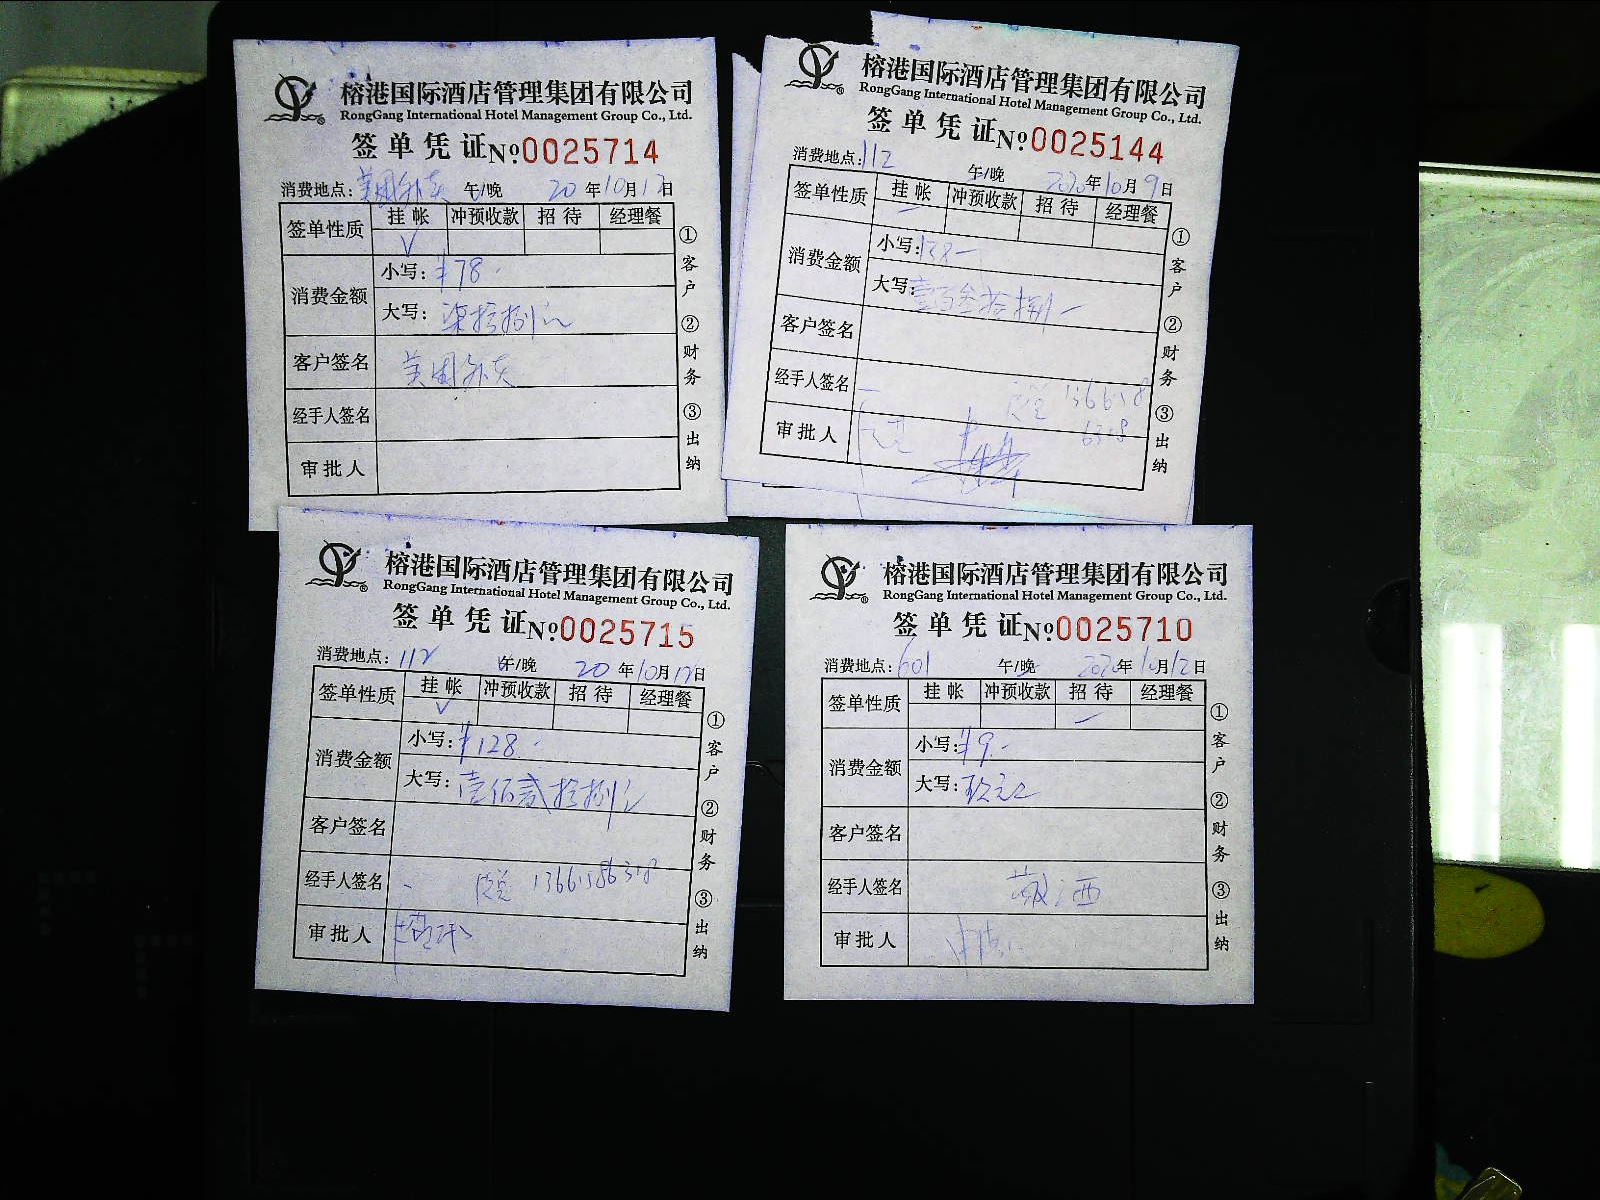 榕港国际酒店管理集团有限公司
RongGang International Hotel Management Group Co., Ltd.
签单凭证 №0025714
消费地点: 美团外卖 午/晚 20年10月12日
签单性质 挂帐 冲预收款 招待 经理餐
√
消费金额 小写: ¥78.
大写: 柒拾捌元
客户签名 美团外卖
经手人签名
审批人
①客户 ②财务 ③出纳
榕港国际酒店管理集团有限公司
RongGang International Hotel Management Group Co., Ltd.
签单凭证 №0025144
消费地点: 112 午/晚 2020年10月9日
签单性质 挂帐 冲预收款 招待 经理餐
消费金额 小写: 138-
大写: 壹百叁拾捌
客户签名
经手人签名
审批人
①客户 ②财务 ③出纳
榕港国际酒店管理集团有限公司
RongGang International Hotel Management Group Co., Ltd.
签单凭证 №0025715
消费地点: 112 午/晚 20年10月12日
签单性质 挂帐 冲预收款 招待 经理餐
√
消费金额 小写: ¥128.-
大写: 壹佰贰拾捌元
客户签名
经手人签名 13665186308
审批人
①客户 ②财务 ③出纳
榕港国际酒店管理集团有限公司
RongGang International Hotel Management Group Co., Ltd.
签单凭证 №0025710
消费地点: 601 午/晚 2020年10月12日
签单性质 挂帐 冲预收款 招待 经理餐
消费金额 小写: ¥9.-
大写: 玖元
客户签名
经手人签名 敬酒
审批人
①客户 ②财务 ③出纳